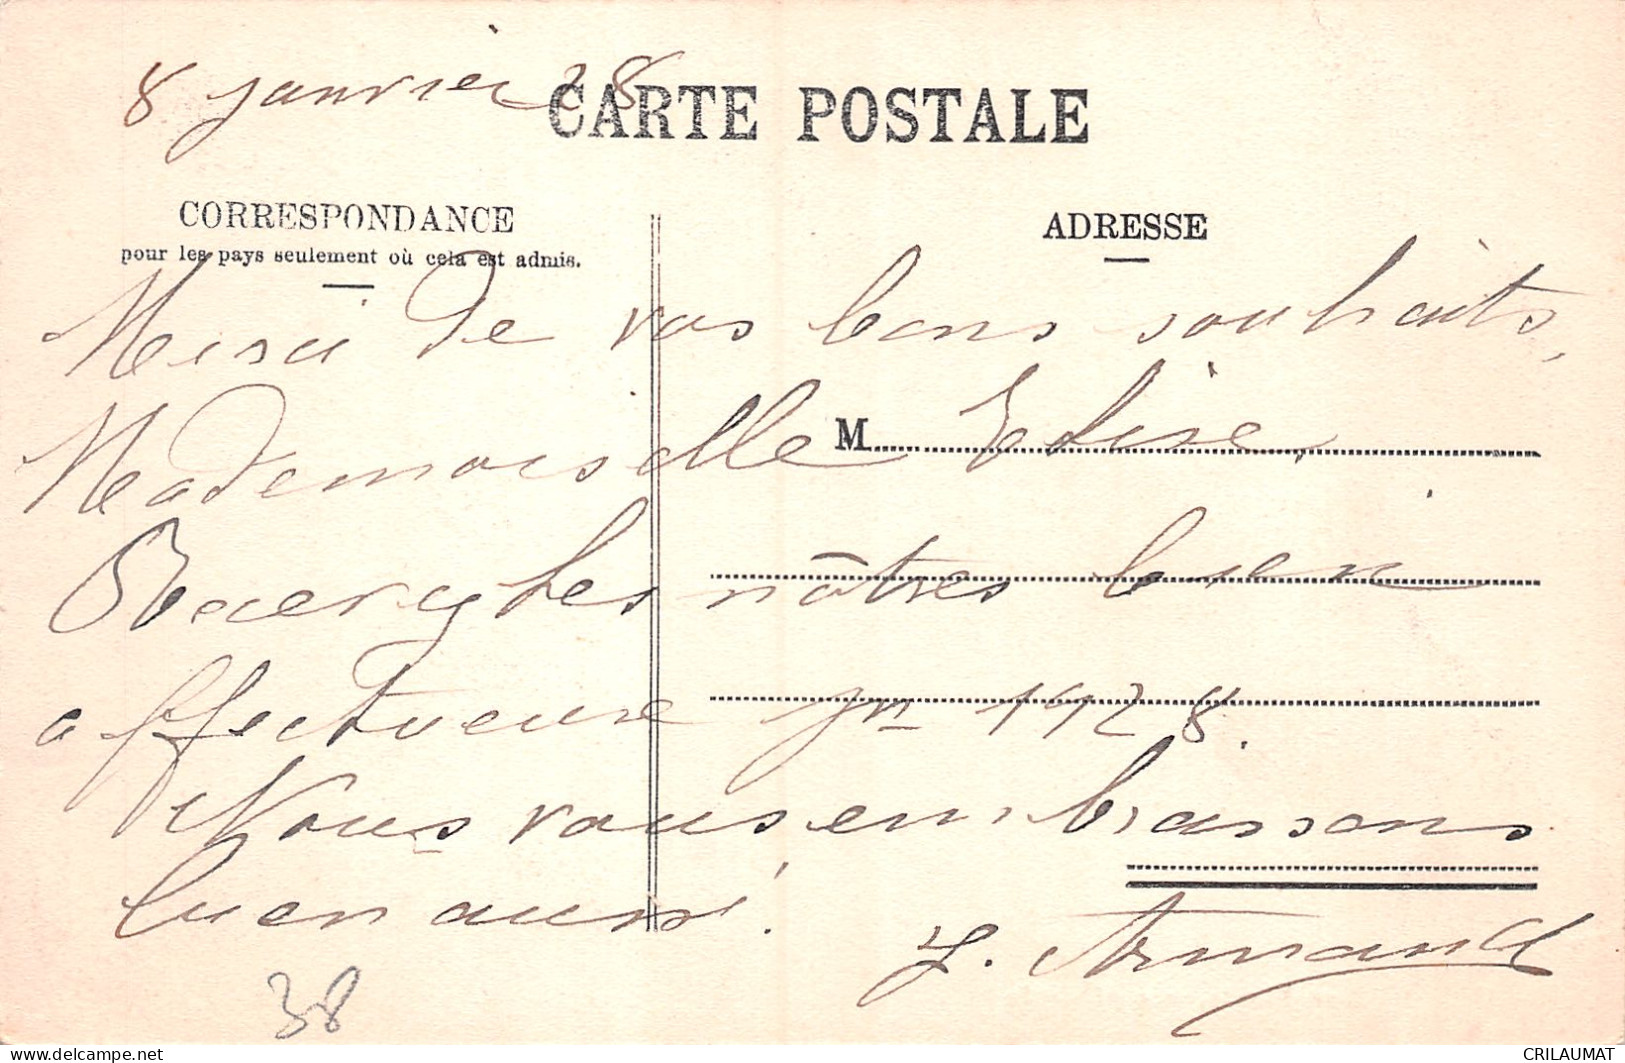 8 janvier 28
CARTE POSTALE
CORRESPONDANCE
pour les pays seulement où cela est admis.
ADRESSE
Merci de vos bons souhaits,
Mademoiselle Elise.
M
Recevez les nôtres bien
affectueux pr 1928.
Nous vous embrassons
bien aussi.
Y. Armand
38
CRILAUMAT